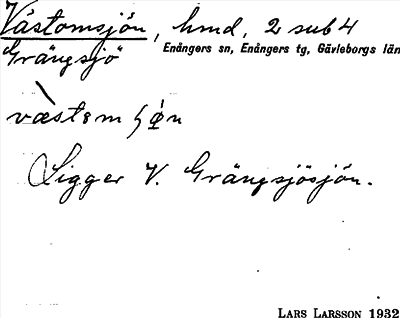 Västomsjön, hmd, 2 sub 4
Grängsjö
Enångers sn, Enångers tg, Gävleborgs län
Ligger V. Grängsjösjön.
LARS LARSSON 1932